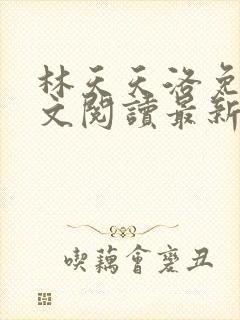 林天天洛免
文閱讀最新
喫藕會變丑